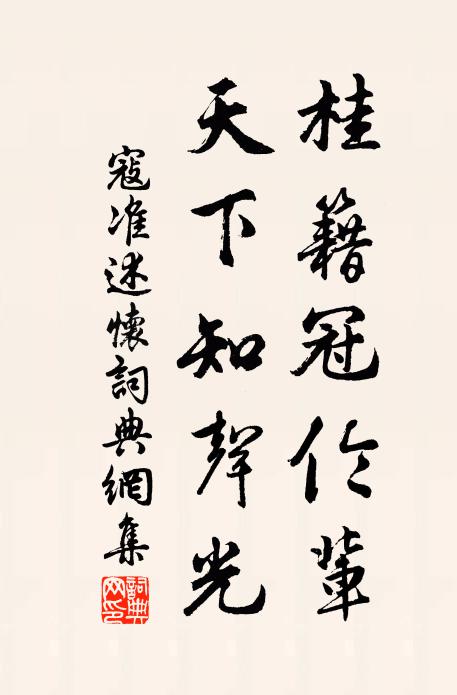 桂籍冠伦輩
天下知聲光
寇准述懷詞典網集
詞典網印